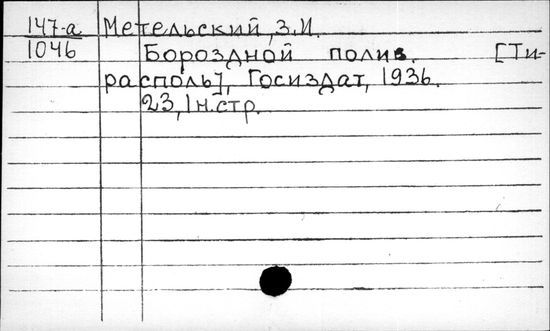 147-а Метельский, З.И.
1046 Бороздной полив. [Ти-
располь], Госиздат, 1936.
23, 1н.стр.